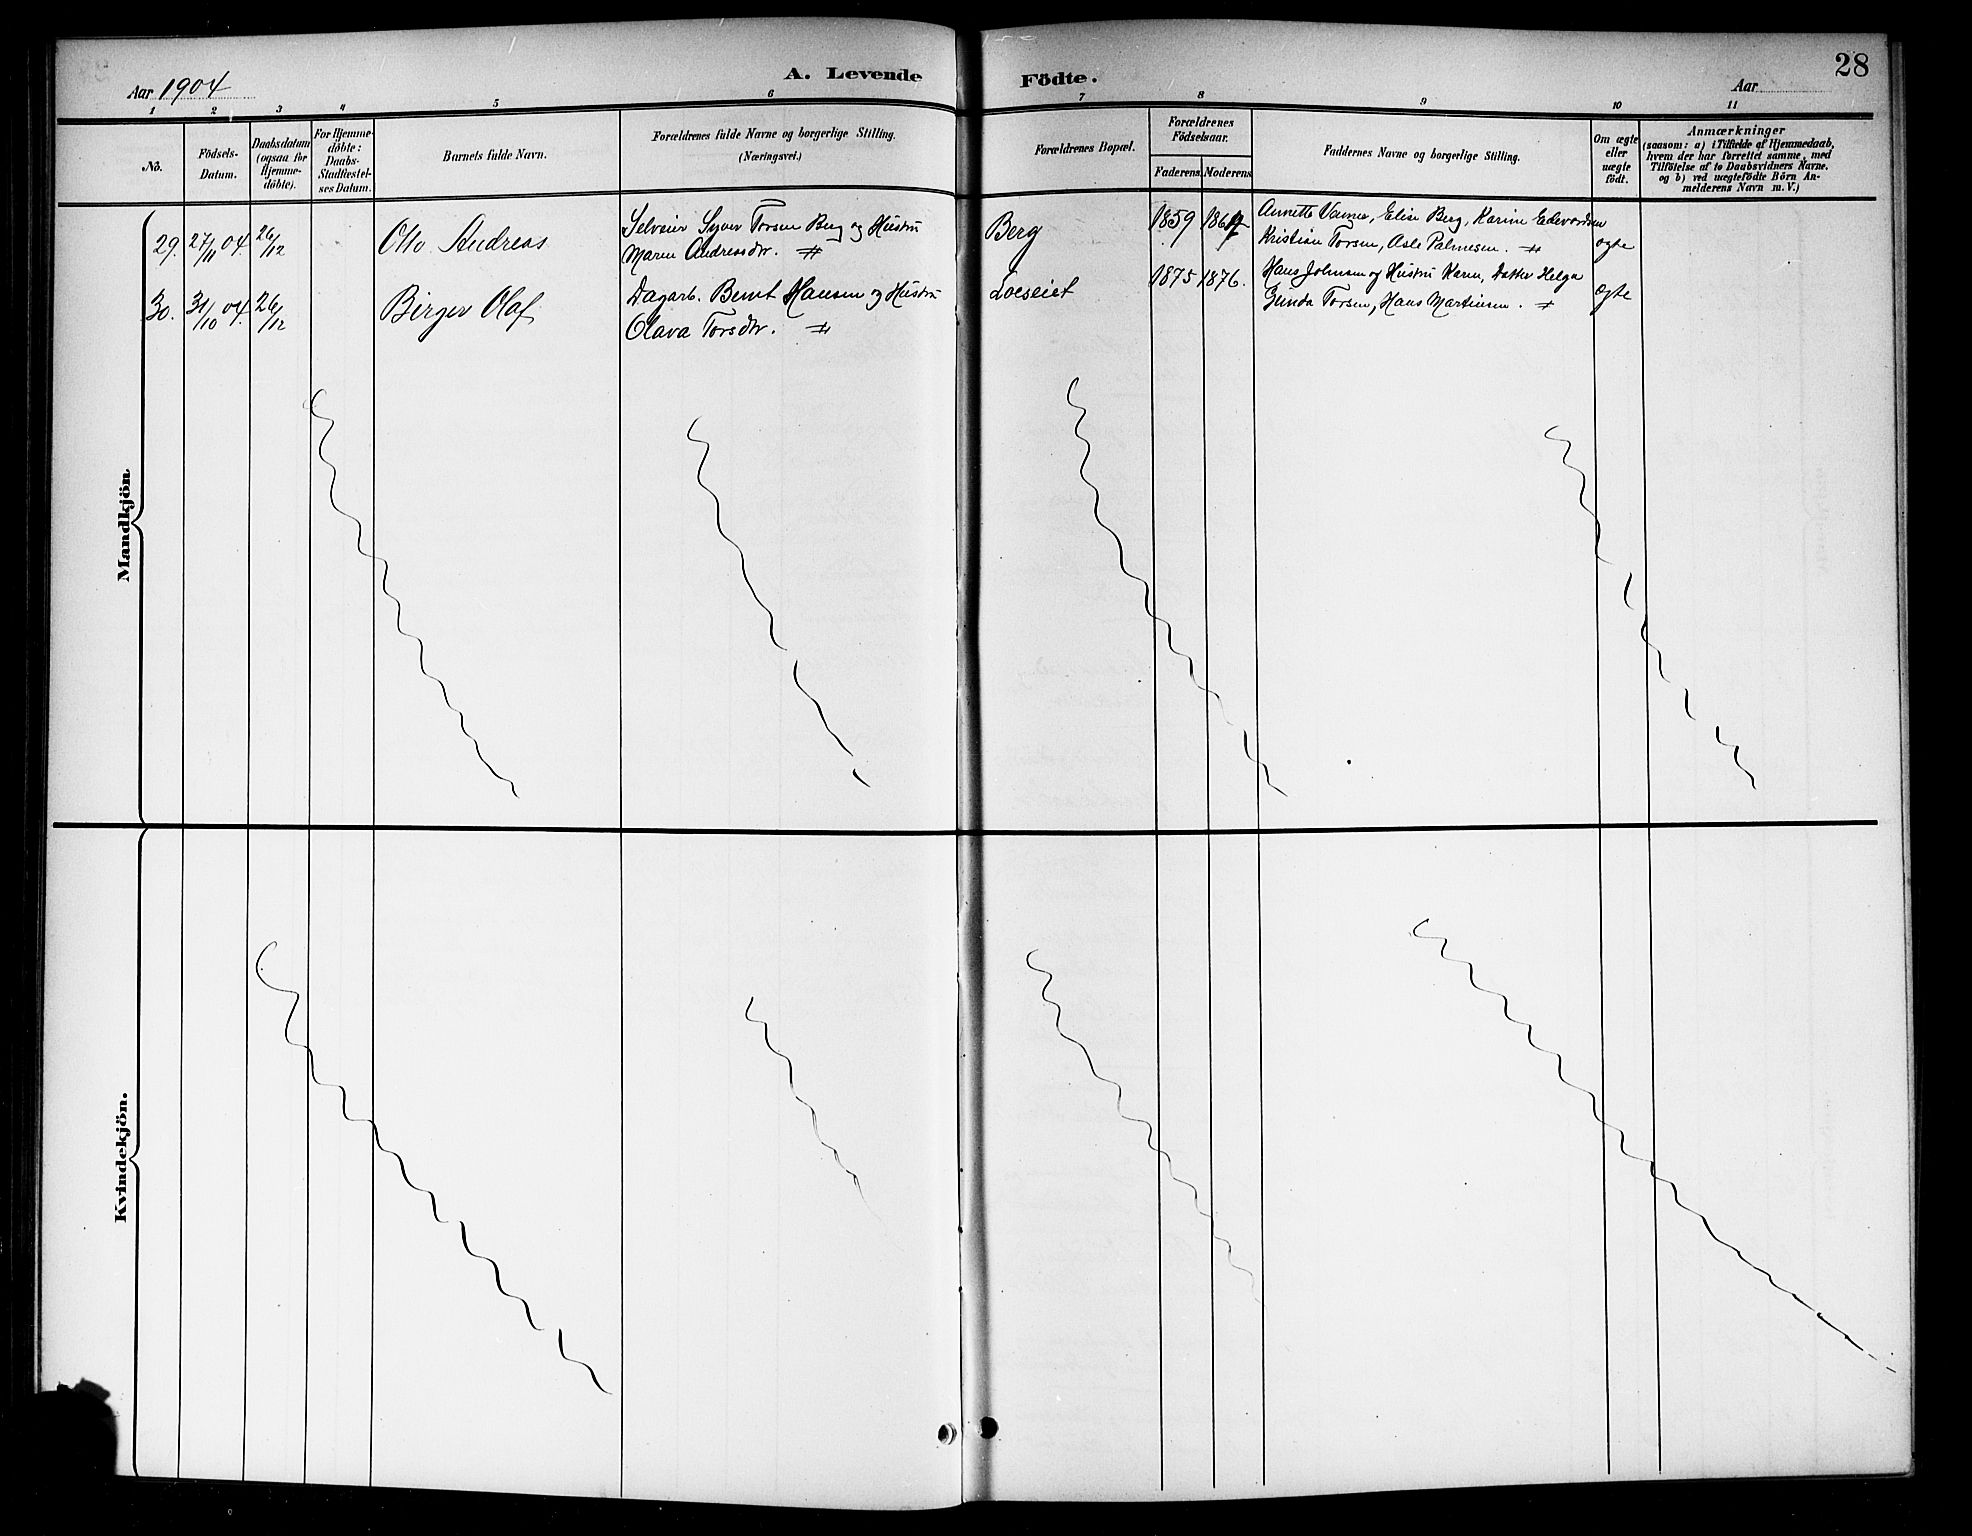 28
Aar 1904
A. Levende
Födte.
Aar
1 2 3 4 5 6 7 8 9 10 11
No.
Födsels-
Datum.
Daabsdatum
(ogsaa for
Hjemme-
döbte).
For Hjemme-
döbte:
Daabs-
Stadfæstel-
ses Datum.
Barnets fulde Navn.
Forældrenes fulde Navne og borgerlige Stilling.
(Næringsvei.)
Forældrenes Bopæl.
Forældrenes
Födselsaar.
Faderens.
Moderens.
Faddernes Navne og borgerlige Stilling.
Om ægte
eller
uægte
födt.
Anmærkninger
(saasom: a) i Tilfælde af Hjemmedaab,
hvem der har forrettet samme, med
Tilföielse af to Daabsvidners Navne.
og b) ved uægtefödte Börn An-
melderens Navn m. V.)
Mandkjön
29. 27/11 04. 26/12 Otto Andreas
Selveier Syver Torsen Berg og Hustru
Maren Andreasdtr. #
Berg 1859
Annette Berg, Elise Berg, Karine
Kristian Torsen, Asle Palmesen. #
ægte
30. 31/10 04. 26/12 Birger Olaf
Dagarb. Bernt Hansen og Hustru
Olava Torsdtr. #
Loeseiet 1875 1876.
Hans Johnsen og Hustru Karen, Datter Helga
Gunda Torsen, Hans Martinsen. #
ægte
Kvindekjön.